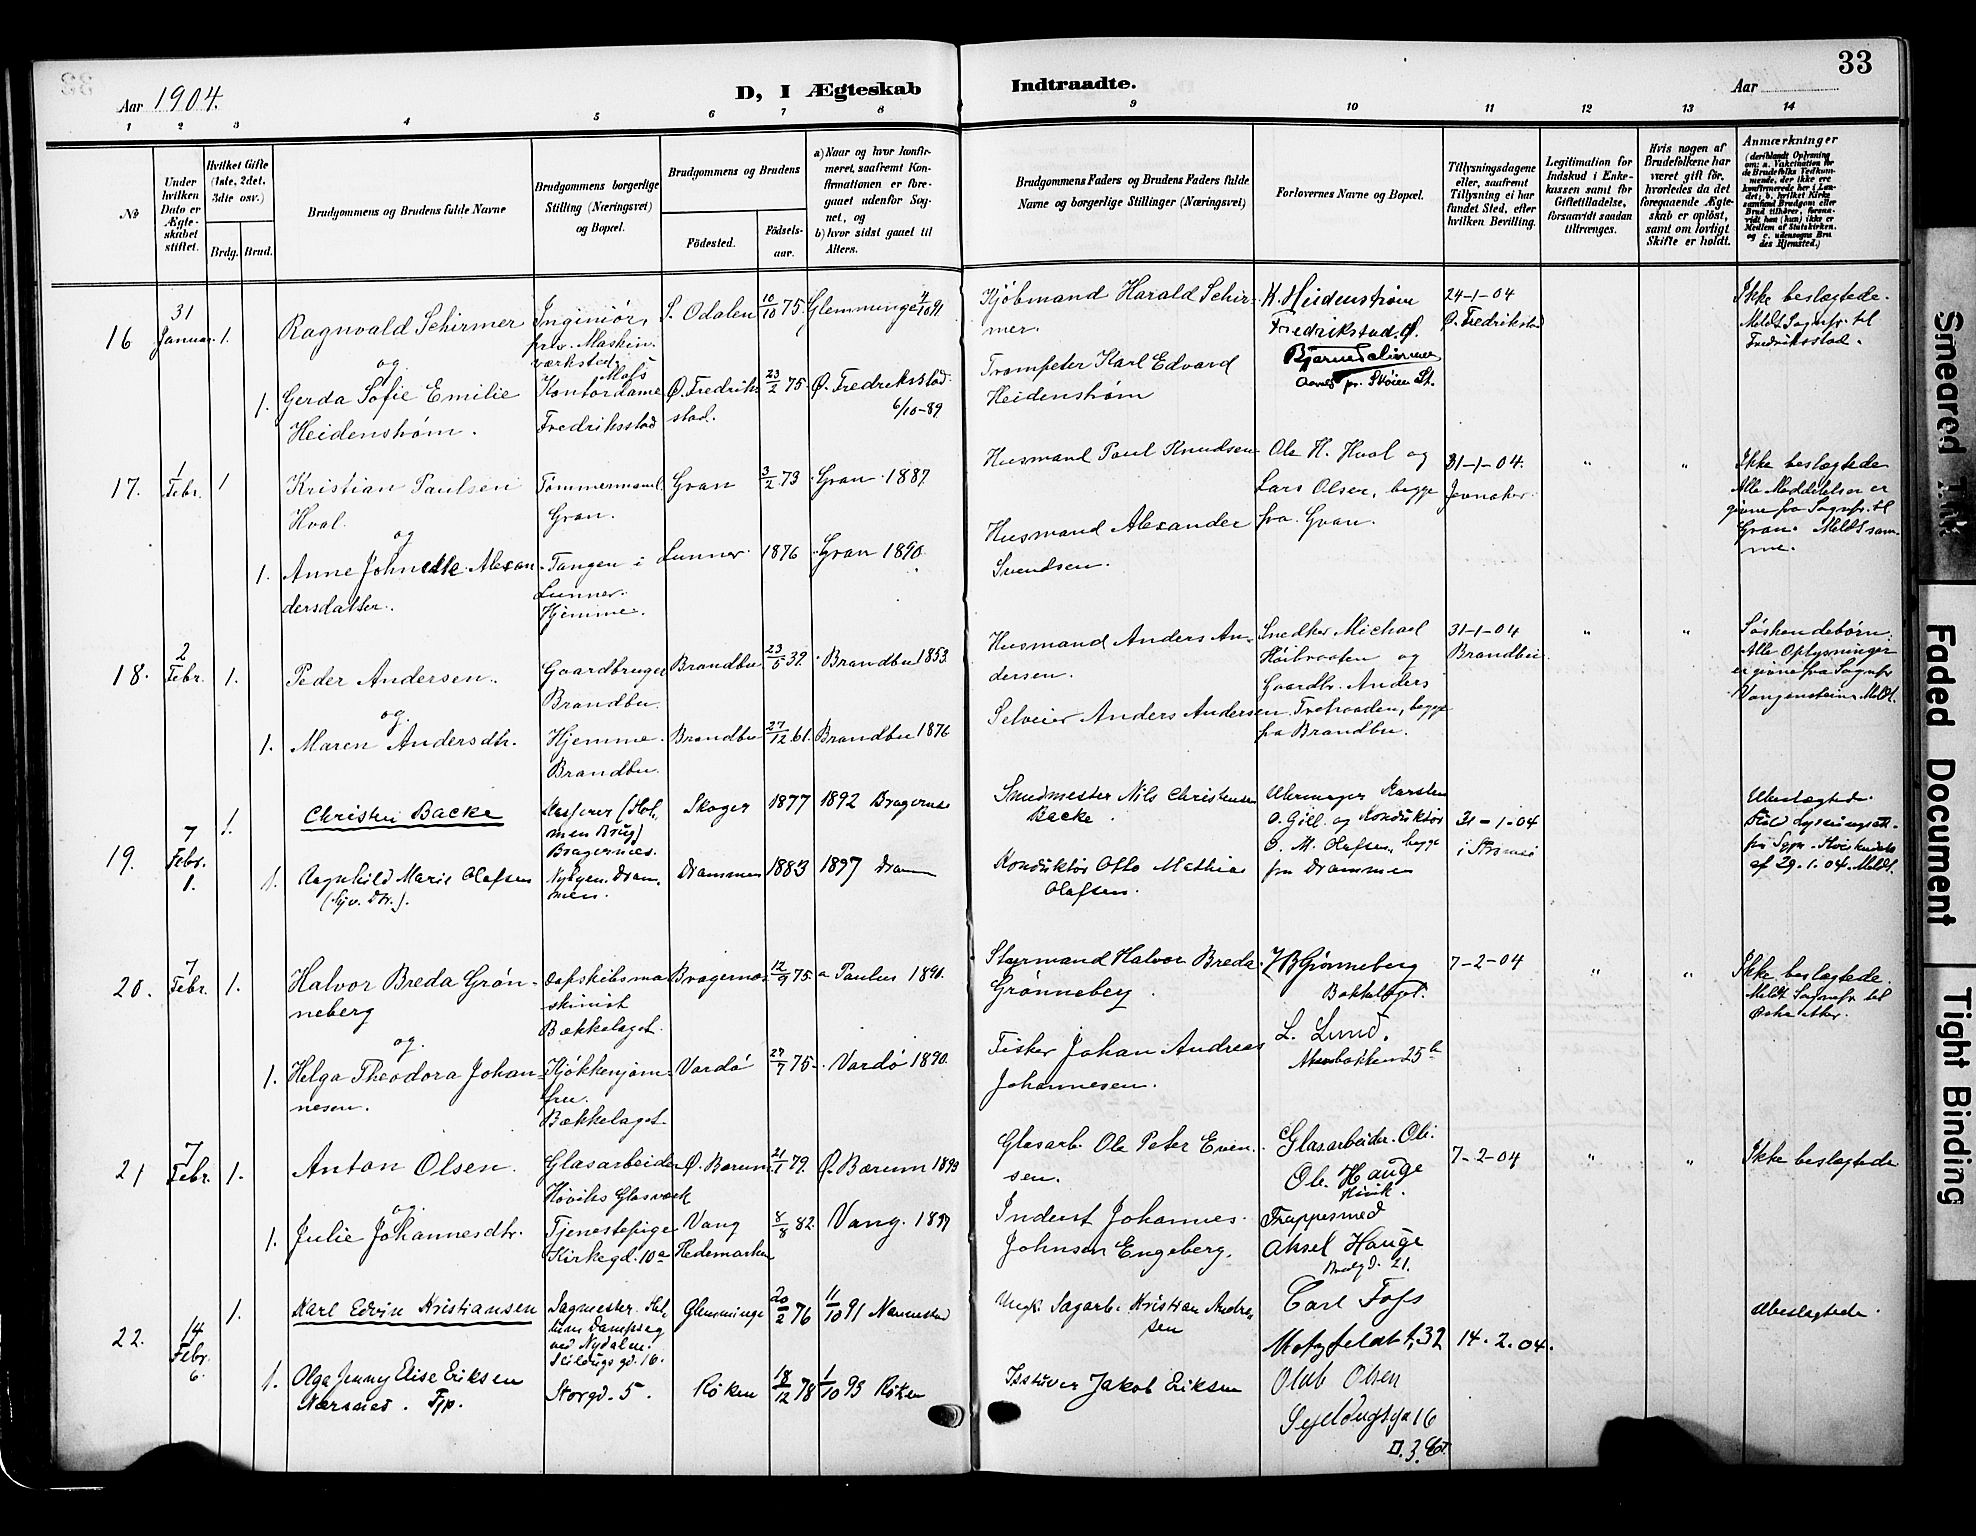 33
Aar 1904.
D, I Ægteskab Indtraadte.
Aar
1 2 3 4 5 6 7 8 9 10 11 12 13 14
No
Under hvilken Dato er Ægteskabet stiftet.
Hvilket Gifte (1ste, 2det, 3die osv.)
Brdg. Brud.
Brudgommens og Brudens fulde Navne
Brudgommens borgerlige Stilling (Næringsvei) og Bopæl.
Brudgommens og Brudens
Fødested. Fødselsaar.
a) Naar og hvor konfirmeret, saafremt Konfirmationen er foregaaet udenfor Sognet, og
b) hvor sidst gaaet til Alters.
Brudgommens Faders og Brudens Faders fulde Navne og borgerlige Stillinger (Næringsvei)
Forlovernes Navne og Bopæl.
Tillysningsdagene eller, saafremt Tillysning ei har fundet Sted, efter hvilken Bevilling.
Legitimation for Indskud i Enkekassen samt for Giftetilladelse, forsaavidt saadan tiltrænges.
Hvis nogen af Brudefolkene har været gift før, hvorledes da det foregaaende Ægteskab er opløst, samt om lovligt Skifte er holdt.
Anmærkninger
(deriblandt Oplysning om: a. Vakcination for de Brudefolks Vedkommende, der ikke ere konfirmerede her i Landet; b. hvilket Kirkesamfund Brudgom eller Brud tilhører, forsaavidt han (hun) ikke er Medlem af Statskirken, og c. udensogns Brudes Hjemsted.)
16 31 Januar 1.
Ragnvald Schirmer
Inginiør,
S. Odalen 10/10 75. Glemminge 4/10 91
Kjøbmand Harald Schirmer.
H. Heidenstrøm
Fredrikstad. Ø.
24-1-04
Ø. Fredrikstad
Ikke beslægtede.
Meldt Sognepr. til
Fredriksstad.
og
1. Gerda Sofie Emilie
Heidenstrøm.
Kontordame
Fredriksstad
Ø. Fredriksstad. 23/2 75. Ø. Fredriksstad
6/10-89
Trompeter Karl Edvard
Heidenstrøm
17. 1 Febr. 1
Kristian Paulsen
Hval.
Tømmermand.
Gran.
Gran 3/2 73 Gran 1887
Husmand Paul Knudsen
Ole H. Hval og
Lars Olsen, begge
fra Gran.
31-1-04.
Jevnaker.
" "
Ikke beslægtede
Alle Meddelelser er
givne fra Sognepr. til
Gran. Meldt samme.
og
1. Anne Johnette Alexandersdatter.
Tangen i
Lunner.
Hjemme.
Lunner 1876 Gran 1890.
Husmand Alexander
Svendsen.
18. 2 Febr. 1.
Peder Andersen.
Gaardbruger
Brandbu.
Brandbu 23/5 39. Brandbu 1853.
Husmand Anders Andersen.
Snedker Michael
Høibraaten og
Gaardbr. Anders
Tretraaden, begge
fra Brandbu.
31-1-04
Brandbu
" "
Søskendebørn.
Alle Oplysninger
er givne fra Sognepr.
Vangenstein. Meldt.
og
1. Maren Andersdtr.
Hjemme.
Brandbu.
Brandbu 27/12 61. Brandbu 1876
Selveier Anders Andersen
19. 7 Febr. 1. 1.
Christen Backe
Kasserer (Holmen Brug)
Bragernes.
Skoger 1877 1892 Bragernes
Smedmester Nils Christensen
Backe.
Uhrmager Karsten
O. Gill. og Konduktør
O. M. Olafsen, begge
fra Drammen
31-1-04
i Strømsø
Ubeslægtede.
af 29.1.04. Meldt.
1. Aagnhild Marie Olafsen
(Syv. Dtr.).
Nybyen. Drammen.
Drammen 1883 1897 Dram
Konduktør Otto Mathias
Olafsen.
20. 7 Febr. 1.
Halvor Breda Grønneberg
Dapskibsmaskinist
Bækkelaget.
Bragernes 12/9 75. Paulus 1890.
Styrmand Halvor Breda
Grønneberg.
H B Grønneberg
Bækkelaget.
L. Lund.
7-2-04
" "
Ikke beslægtede.
Meldt Sognepr. til
Østre Aker.
og.
1. Helga Theodora Johannesen.
Kjøkkenjomfru.
Bækkelaget.
Vardø 27/7 75. Vardø 1890.
Fisker Johan Andreas
Johannesen.
21 7 Febr. 1.
Anton Olsen.
Glasarbeider
Høviks Glasværk
Ø. Bærum 21/1 79. Ø. Bærum 1893
Glasarb. Ole Peter Evensen.
Glasarbeider. Ole.
Ole. Hauge
Høvik.
7-2-04
" "
Ikke beslægtede
og.
1. Julie Johannesdtr.
Tjenestepige
Kirkegd. 10a
Vang
Hedemarken
8/8 82. Vang. 1897
Inderst Johannes
Johnsen Engeberg.
Trappesmed
Aksel Hauge
22. 14 Febr. 6. 1.
Karl Edvin Kristiansen
Sagmester
ved Nydalen.
Glemminge 20/2 76 11/10 91 Nannestad
Ungk. Sagarb. Kristian Andresen
Carl Foss
Motzfeldt g. 32
14.2.04.
Ubeslægtede.
1. Olga Jenny Elise Eriksen
Nærsnes. Tjp.
Storgd. 5.
Røken 18/12 78 1/10 93 Røken
Isstuver Jakob Eriksen
Oluf Olsen
Seildugsga 16
Smeared Ink
Faded Document
Tight Binding